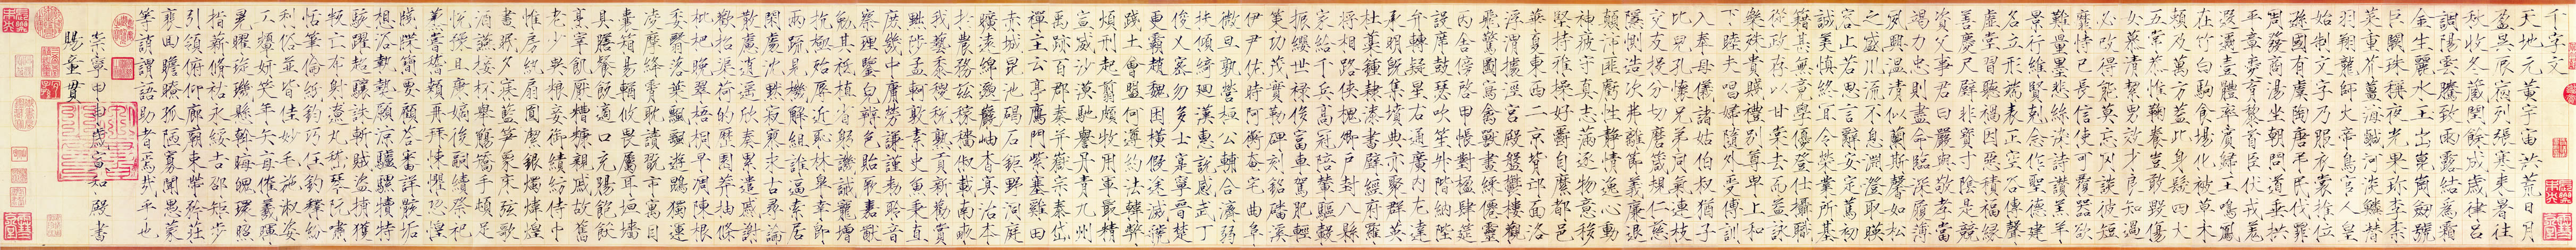 千字文
天地元黄宇宙洪荒日月
盈昃辰宿列張寒来暑往
秋收冬藏閏餘成歲律吕
調陽雲騰致雨露結為霜
金生麗水玉出崑崗劍號
巨闕珠稱夜光果珍李柰
菜重芥薑海鹹河淡鱗潜
羽翔龍師火帝鳥官人皇
始制文字乃服衣裳推位
遜國有虞陶唐弔民伐罪
周發商湯坐朝問道垂拱
平章愛育黎首臣伏戎羌
遐邇壹體率賓歸王鳴鳳
在竹白駒食場化被草木
賴及萬方蓋此身髮四大
五常恭惟鞠養豈敢毁傷
女慕清潔男效才良知過
必改得能莫忘罔談彼短
靡恃己長信使可覆器欲
難量墨悲絲染詩讚羔羊
景行維賢剋念作聖德建
名立形端表正空谷傳聲
虚堂習聽禍因惡積福緣
善慶尺璧非寶寸陰是競
資父事君曰嚴與敬孝當
竭力忠則盡命臨深履薄
夙興温凊似蘭斯馨如松
之盛川流不息淵澄取映
容止若思言辭安定篤初
誠美慎終宜令榮業所基
籍甚無竟學優登仕攝職
從政存以甘棠去而益詠
樂殊貴賤禮别尊卑上和
下睦夫唱婦隨外受傅訓
入奉母儀諸姑伯叔猶子
比兒孔懷兄弟同氣連枝
交友投分切磨箴規仁慈
隱惻造次弗離節義廉退
顛沛匪虧性靜情逸心動
神疲守真志滿逐物意移
堅持雅操好爵自縻都邑
華夏東西二京背邙面洛
浮渭據涇宫殿盤鬱樓觀
飛驚圖寫禽獸畫綵僊靈
丙舍傍啓甲帳對楹肆筵
設席鼓瑟吹笙升階納陛
弁轉疑星右通廣内左達
承明既集墳典亦聚群英
杜藁鍾隸漆書壁經府羅
將相路俠槐卿户封八縣
家給千兵高冠陪輦驅轂
振纓世禄侈富車駕肥輕
策功茂實勒碑刻銘磻溪
伊尹佐時阿衡奄宅曲阜
微旦孰營桓公輔合濟弱
扶傾綺迴漢惠説感武丁
俊乂密勿多士寔寧晉楚
更霸趙魏困横假途滅虢
踐土會盟何遵約法韓弊
煩刑起翦頗牧用軍最精
宣威沙漠馳譽丹青九州
禹跡百郡秦并嶽宗泰岱
禪主云亭鴈門紫塞雞田
赤城昆池碣石鉅野洞庭
曠遠綿邈巖岫杳冥治本
於農務茲稼穡俶載南畝
我藝黍稷税熟貢新勸賞
黜陟孟軻敦素史魚秉直
庶幾中庸勞謙謹勑聆音
察理鑒皃辯色貽厥嘉猷
勉其祗植省躬譏誡寵增
抗極殆辱近恥林皋幸即
兩疏見機解組誰逼索居
閑處沈默寂寥求古尋論
散慮逍遥欣奏累遣慼謝
歡招渠荷的歷園莽抽條
枇杷晚翠梧桐早凋陳根
委翳落葉飄颻遊鵾獨運
凌摩絳霄耽讀翫市寓目
囊箱易輶攸畏屬耳垣墻
具膳飡飯適口充腸飽飫
烹宰飢厭糟糠親戚故舊
老少異粮妾御績紡侍巾
帷房紈扇圓潔銀燭煒煌
晝眠夕寐藍笋象床弦歌
酒讌接杯舉觴矯手頓足
悦豫且康嫡後嗣續祭祀
蒸嘗稽顙再拜悚懼恐惶
牋牒簡要顧荅審詳骸垢
想浴執熱願凉驢騾犢特
駭躍超驤誅斬賊盗捕獲
叛亡布射遼丸嵇琴阮嘯
恬筆倫紙鈞巧任釣釋紛
利俗並皆佳妙毛施淑姿
工顰妍笑年矢每催羲暉
晃曜琁璣懸斡晦魄環照
指薪脩祜永綏吉劭矩步
引領俯仰廊廟束帶矜莊
裴回瞻眺孤陋寡聞愚蒙
等誚謂語助者焉哉乎也
崇寧甲申歲宣和殿書
賜童貫